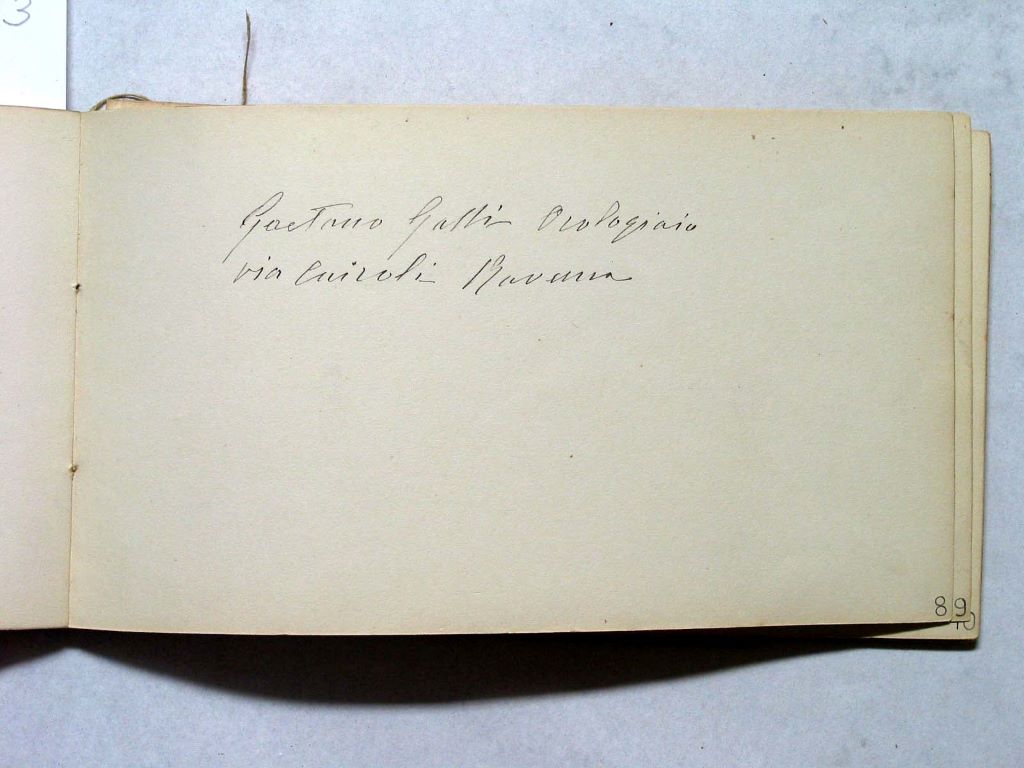 3
Gaetano Galli Orologiaio
via Cairoli Ravenna
8 9
10